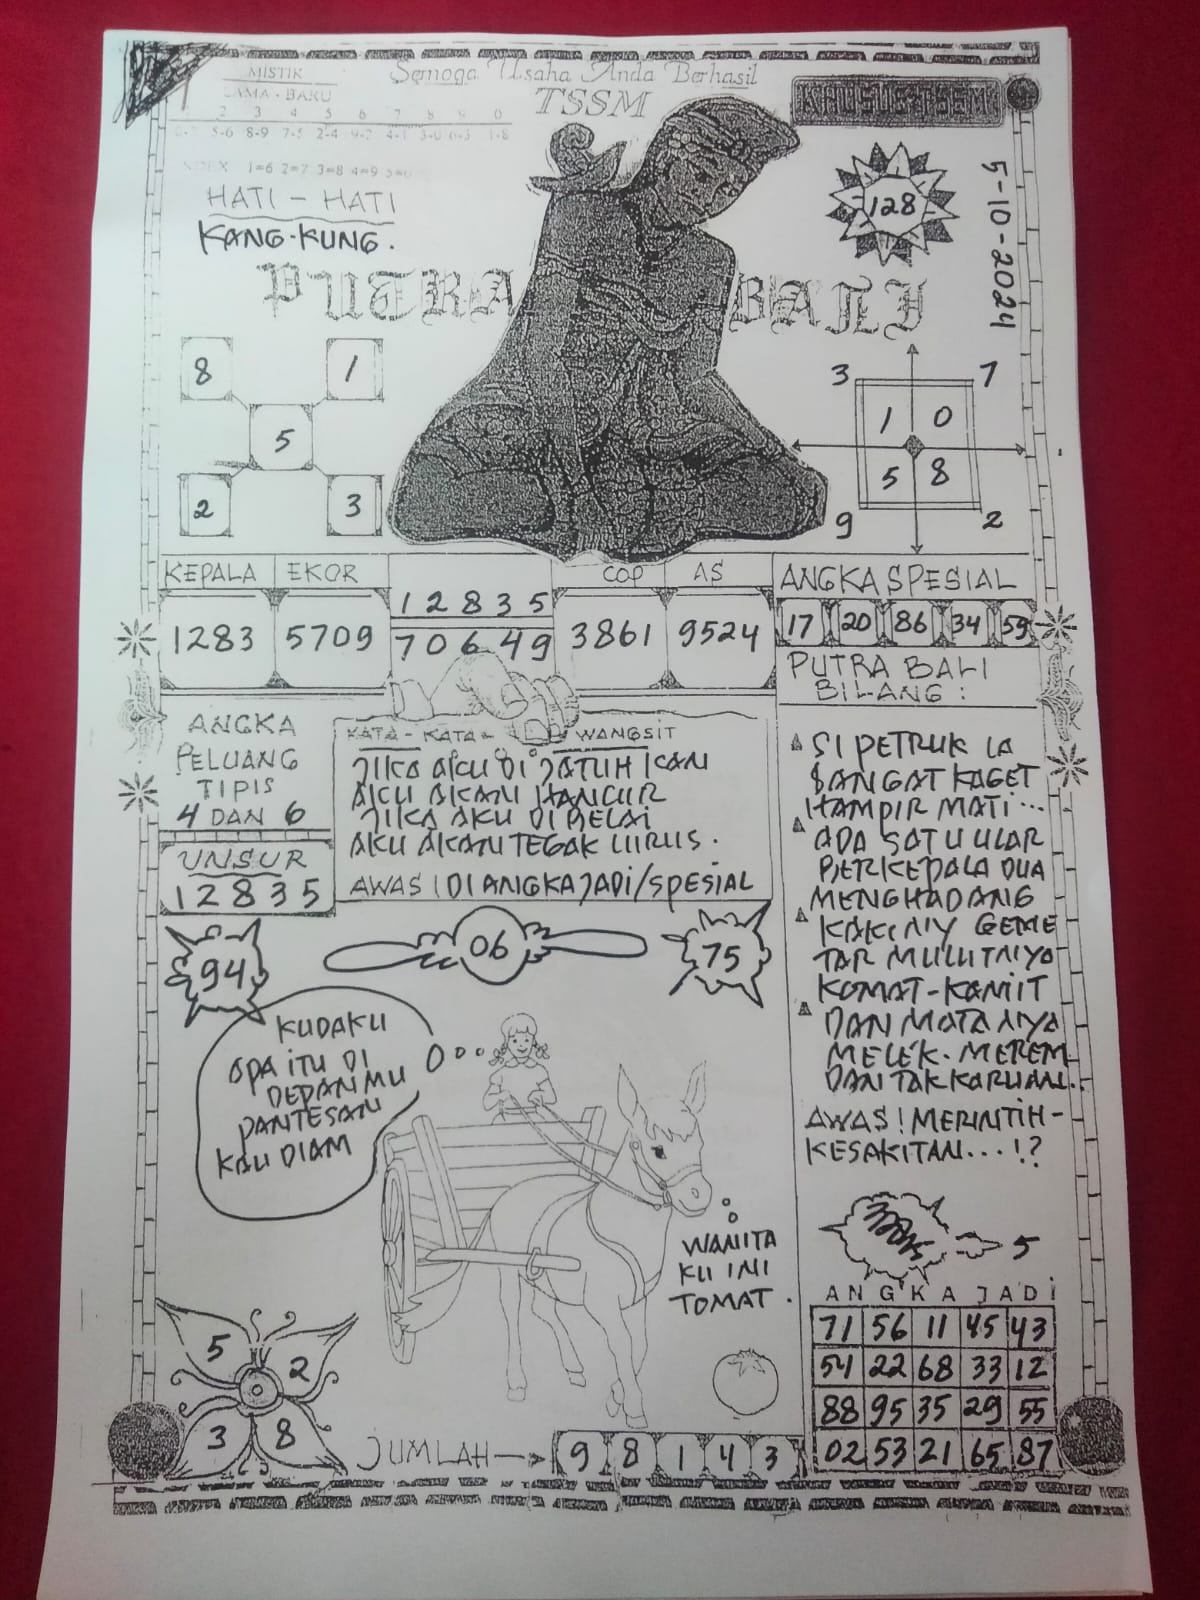 MISTIK
LAMA - BARU
2 3 4 5 6 7 8 9 0
5-6 8-9 7-5 2-4 9-2 4-1 3-0 6-3 1-8
INDEX 1=6 2=7 3=8 4=9 5=0
Semoga Usaha Anda Berhasil
TSSM
KHUSUS TSSM
HATI - HATI
KANG-KUNG.
128
5-10-2024
PUTRA BALI
8 1
5
2 3
3 7
1 0
5 8
9 2
KEPALA EKOR COP AS ANGKA SPESIAL
1283 5709
12835
70649
3861 9524
17 20 86 34 59
PUTRA BALI
BILANG :
ANGKA
PELUANG
TIPIS
4 DAN 6
UNSUR
12835
KATA - KATA - WANGSIT
JIKA AKU DI JATUH KAN
AKU AKAN HANCUR
JIKA AKU DI BELAI
AKU AKAN TEGAK LURUS.
AWAS! DI ANGKA JADI/SPESIAL
SI PETRUK IA
SANGAT KAGET
HAMPIR MATI...
ADA SATU ULAR
BERKEPALA DUA
MENGHADANG
KAKINIY GEME
TAR MULUTNIYA
KOMAT-KAMIT
DAN MATANIYA
MELEK-MEREM
DAN TAK KARUAN..
AWAS! MERINTIH-
KESAKITAN...!?
94
06
75
KUDAKU
APA ITU DI
DEPANMU
PANTESAN
KAU DIAM
WANITA
KU INI
TOMAT.
5
ANGKA JADI
71 56 11 45 43
54 22 68 33 12
88 95 35 29 55
02 53 21 65 87
5 2
3 8
JUMLAH
9 8 1 4 3